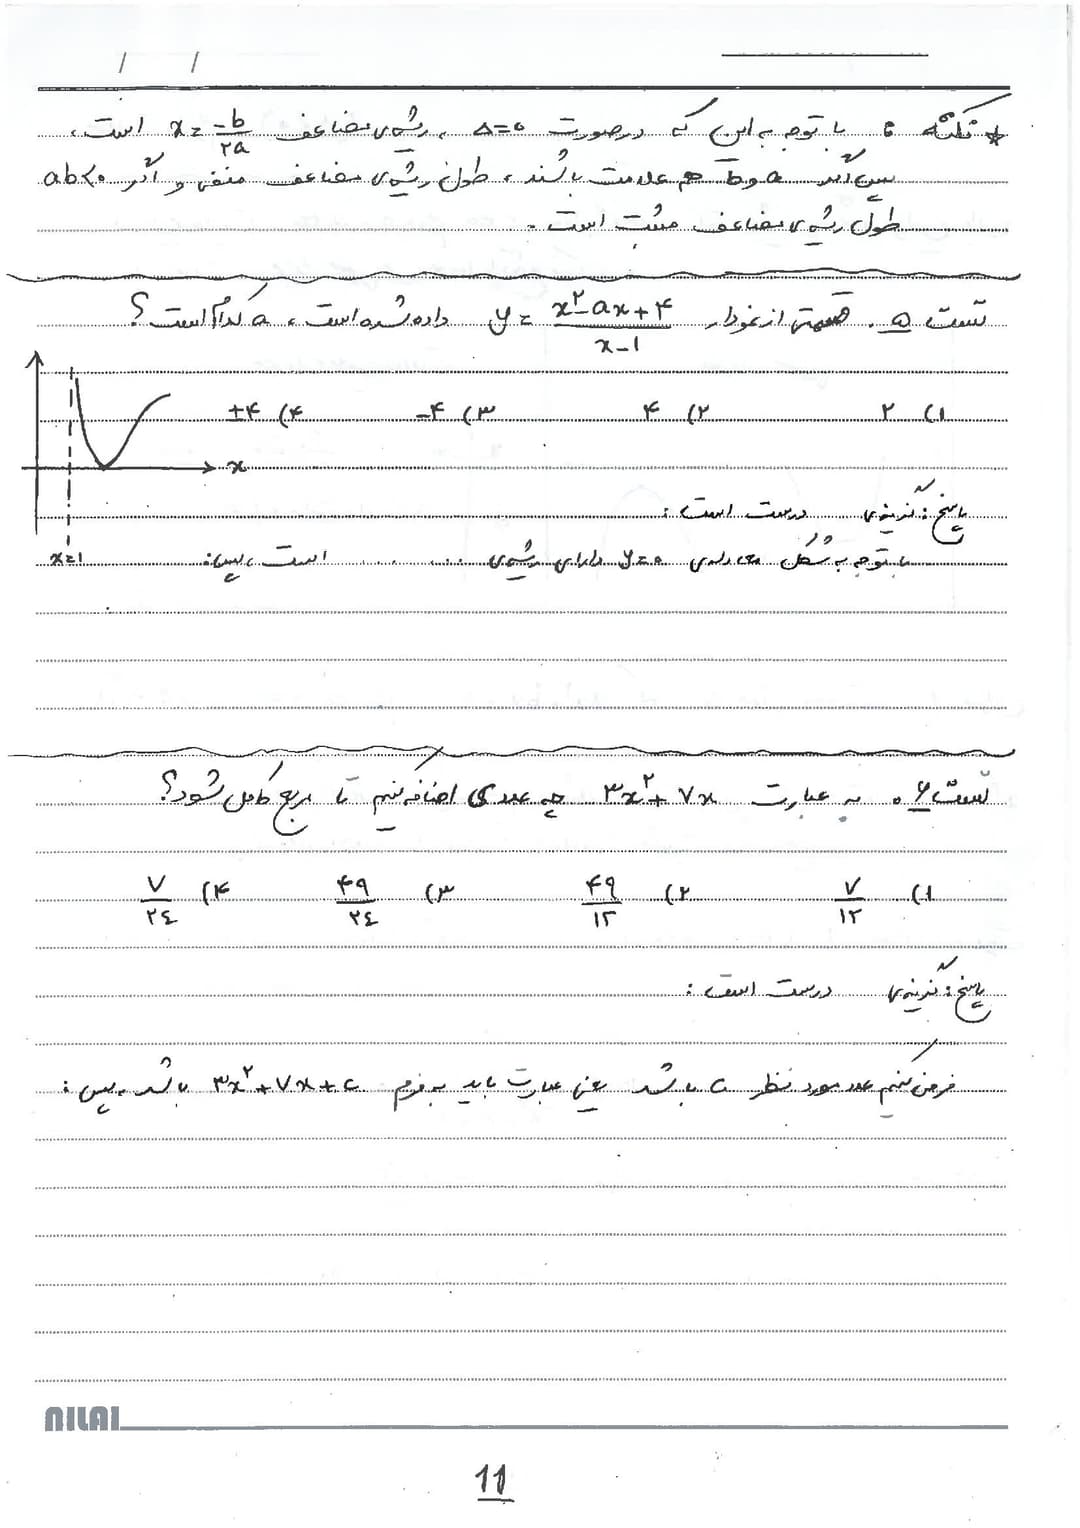 / /
* نکته : با توجه به این که درصورت Δ=۰ ، ریشه‌ی مضاعف x = -b/۲a است،
پس اگر a و b هم علامت باشند، طول ریشه‌ی مضاعف منفی و اگر ab<۰
طول ریشه‌ی مضاعف مثبت است.
تست ۵. قسمتی از نمودار y = (x²-ax+۴)/(x-۱) داده شده است، a کدام است؟
۱) ۲ ۲) ۴ ۳) -۴ ۴) ±۴
x
x=۱
پاسخ: گزینه‌ی درست است:
با توجه به شکل معادله‌ی y=۰ دارای ریشه‌ی ........ است، پس:
تست ۶. به عبارت ۳x²+۷x چه عددی اضافه کنیم تا مربع کامل شود؟
۱) ۷/۱۲ ۲) ۴۹/۱۲ ۳) ۴۹/۲۴ ۴) ۷/۲۴
پاسخ: گزینه‌ی درست است:
فرض کنیم عدد مورد نظر c باشد یعنی عبارت باید به فرم ۳x²+۷x+c باشد، پس:
NILAI
11